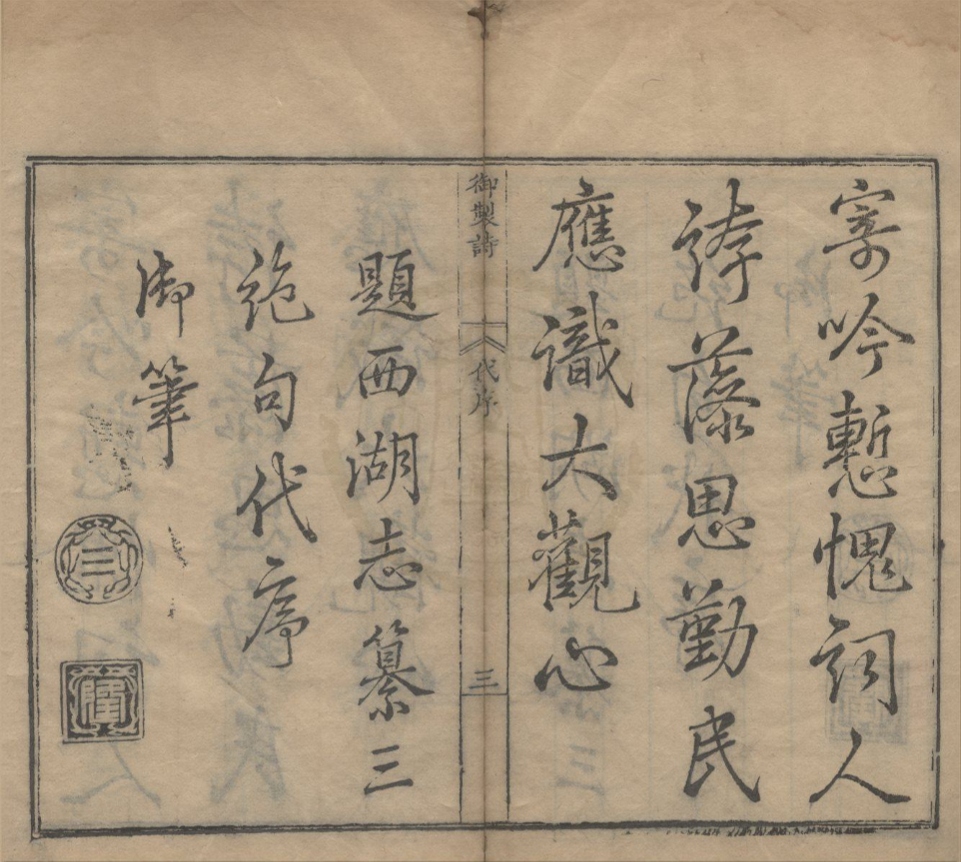 寄吟慙愧詞人
誇藻思勤民
應識大觀心
御製詩
代序
三
題西湖志纂三
絶句代序
御筆
☰
隆